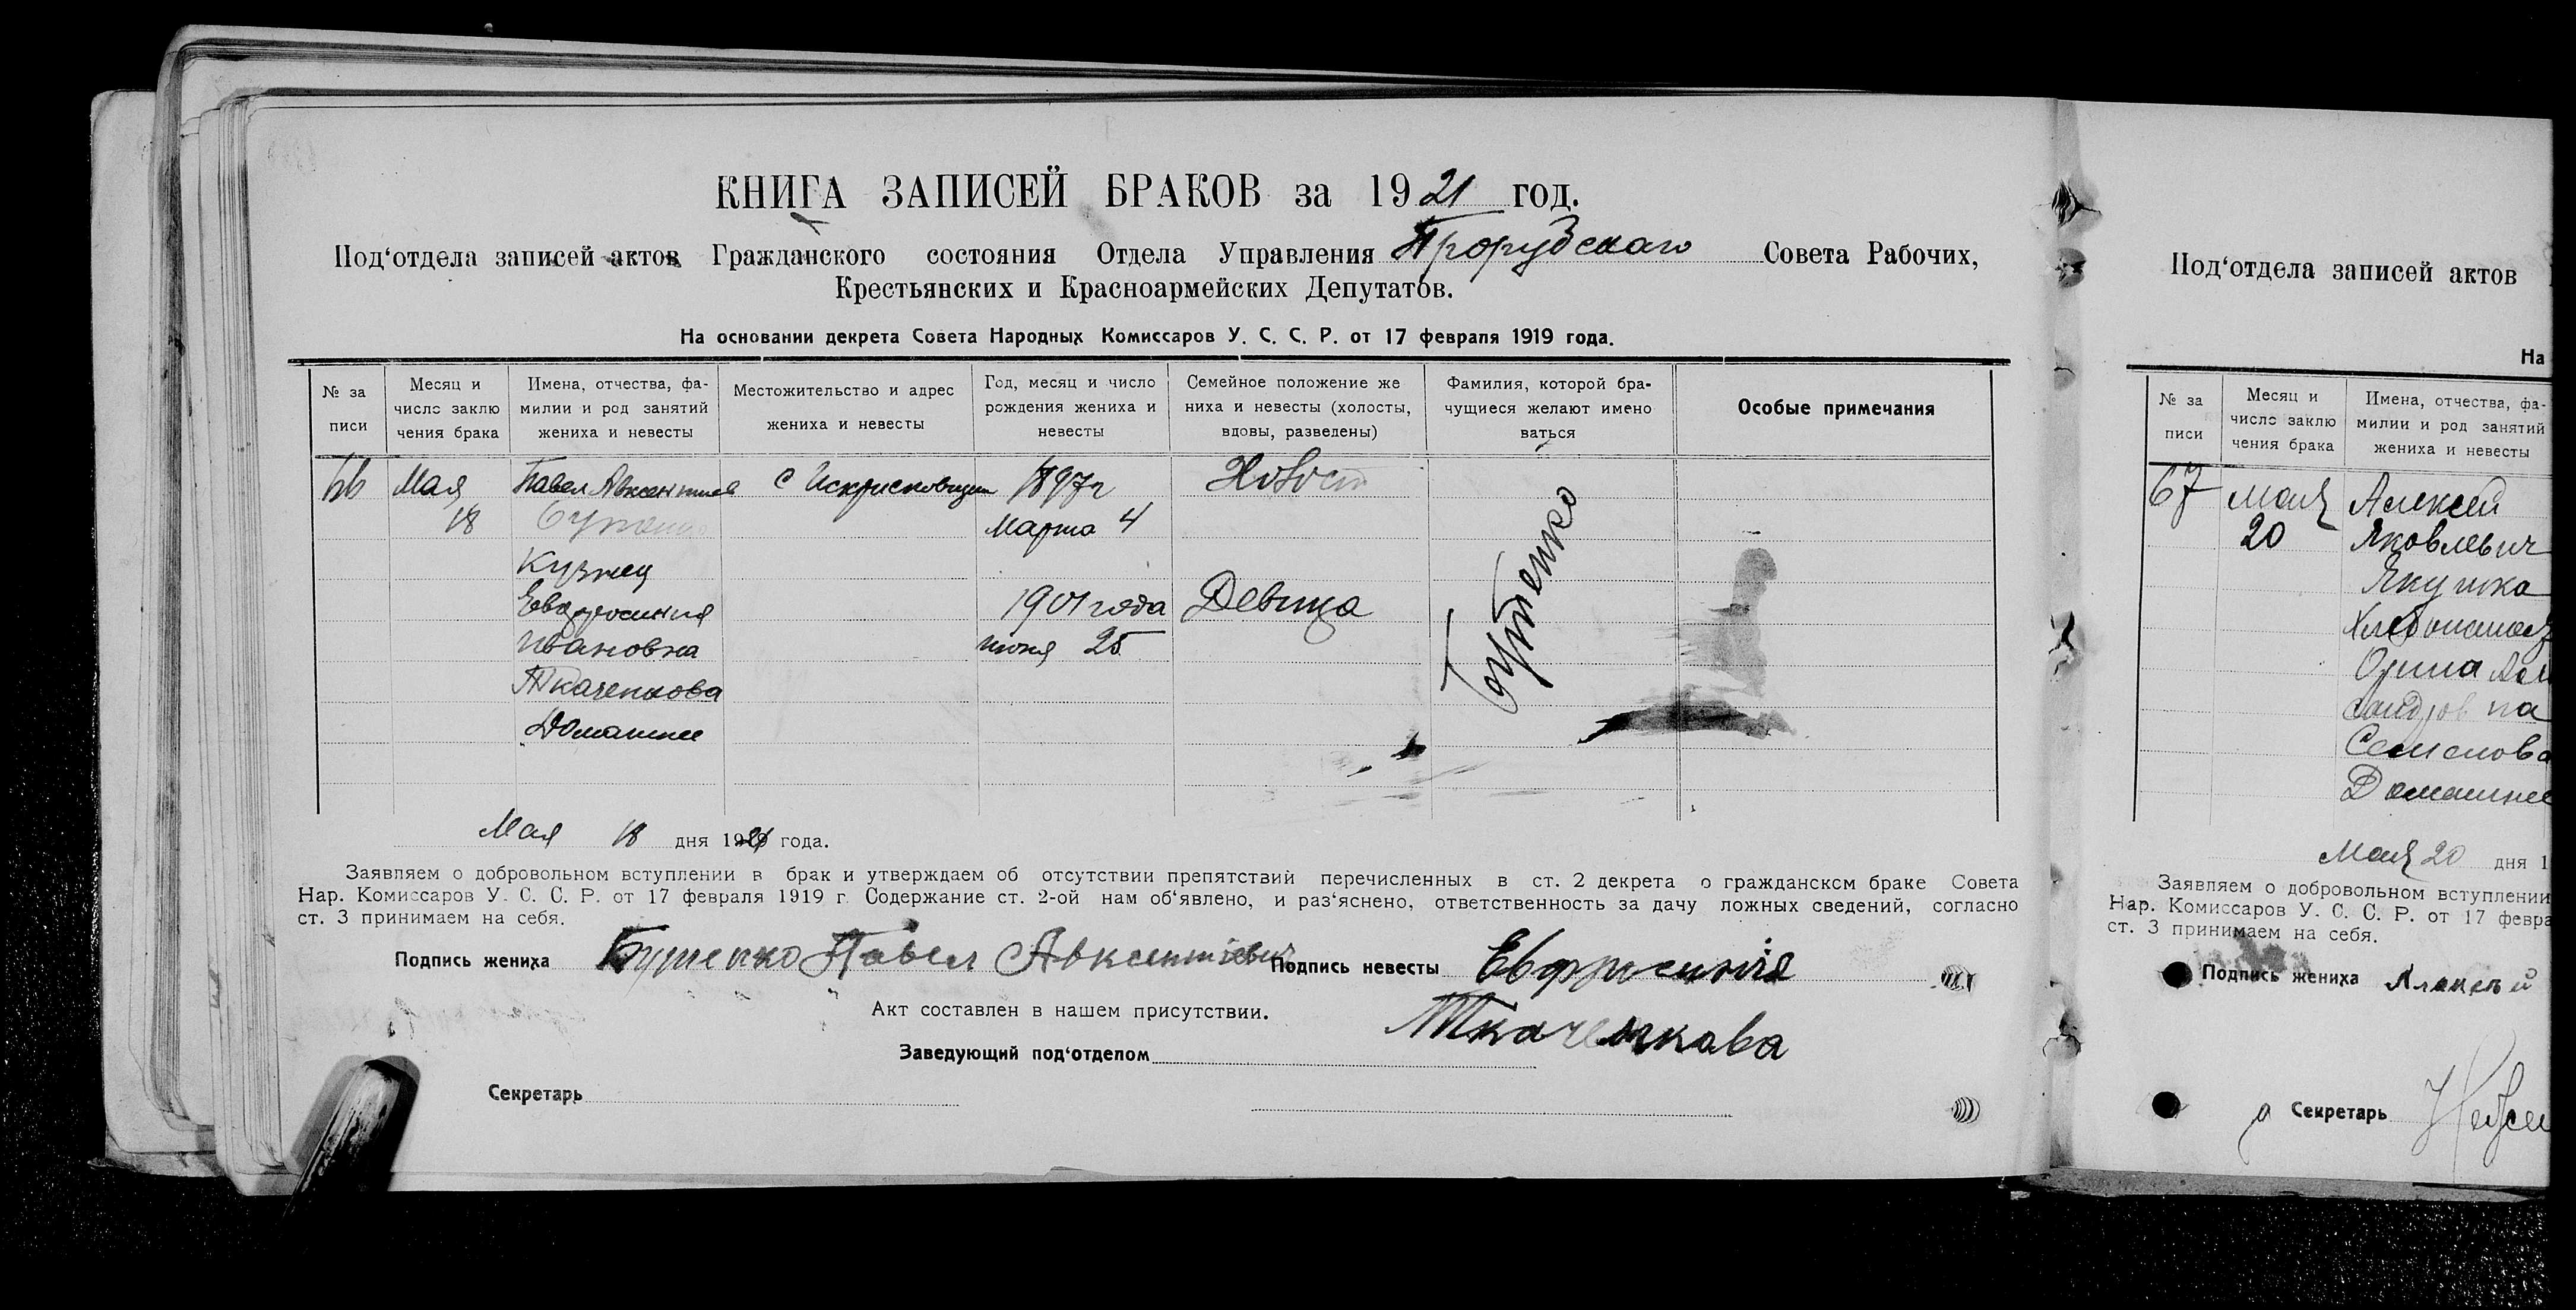 КНИГА ЗАПИСЕЙ БРАКОВ за 1921 год.
Под‘отдела записей актов Гражданского состояния Отдела Управления Прорубскаго Совета Рабочих,
Крестьянских и Красноармейских Депутатов.
На основании декрета Совета Народных Комиссаров У. С. С. Р. от 17 февраля 1919 года.
№ за писи
Месяц и число заклю чения брака
Имена, отчества, фа- милии и род занятий жениха и невесты
Местожительство и адрес жениха и невесты
Год, месяц и число рождения жениха и невесты
Семейное положение же ниха и невесты (холосты, вдовы, разведены)
Фамилия, которой бра- чущиеся желают имено ваться
Особые примечания
66 Мая Павел с 1897г
18 Марта 4
Кузнец
Евфросиния 1901 года Девица
Ивановна июня 25
Ткаченкова
Домашнее
Бутенко
Мая 18 дня 1921 года.
Заявляем о добровольном вступлении в брак и утверждаем об отсутствии препятствий перечисленных в ст. 2 декрета о гражданском браке Совета
Нар. Комиссаров У. С. С. Р. от 17 февраля 1919 г. Содержание ст. 2-ой нам об‘явлено, и раз‘яснено, ответственность за дачу ложных сведений, согласно
ст. 3 принимаем на себя.
Подпись жениха Бутенко Павел Авксентіевич Подпись невесты Евфросинія
Ткаченкова
Акт составлен в нашем присутствии.
Заведующий под‘отделом
Секретарь
Под‘отдела записей актов
На
№ за писи
Месяц и число заклю чения брака
Имена, отчества, фа- милии и род занятий жениха и невесты
67 Мая Алексей
20 Яковлевич
Якушка
Орина
Семенова
Домашнее
Мая 20 дня 1
Заявляем о добровольном вступлении
Нар. Комиссаров У. С. С. Р. от 17 февра
ст. 3 принимаем на себя.
Подпись жениха
Секретарь